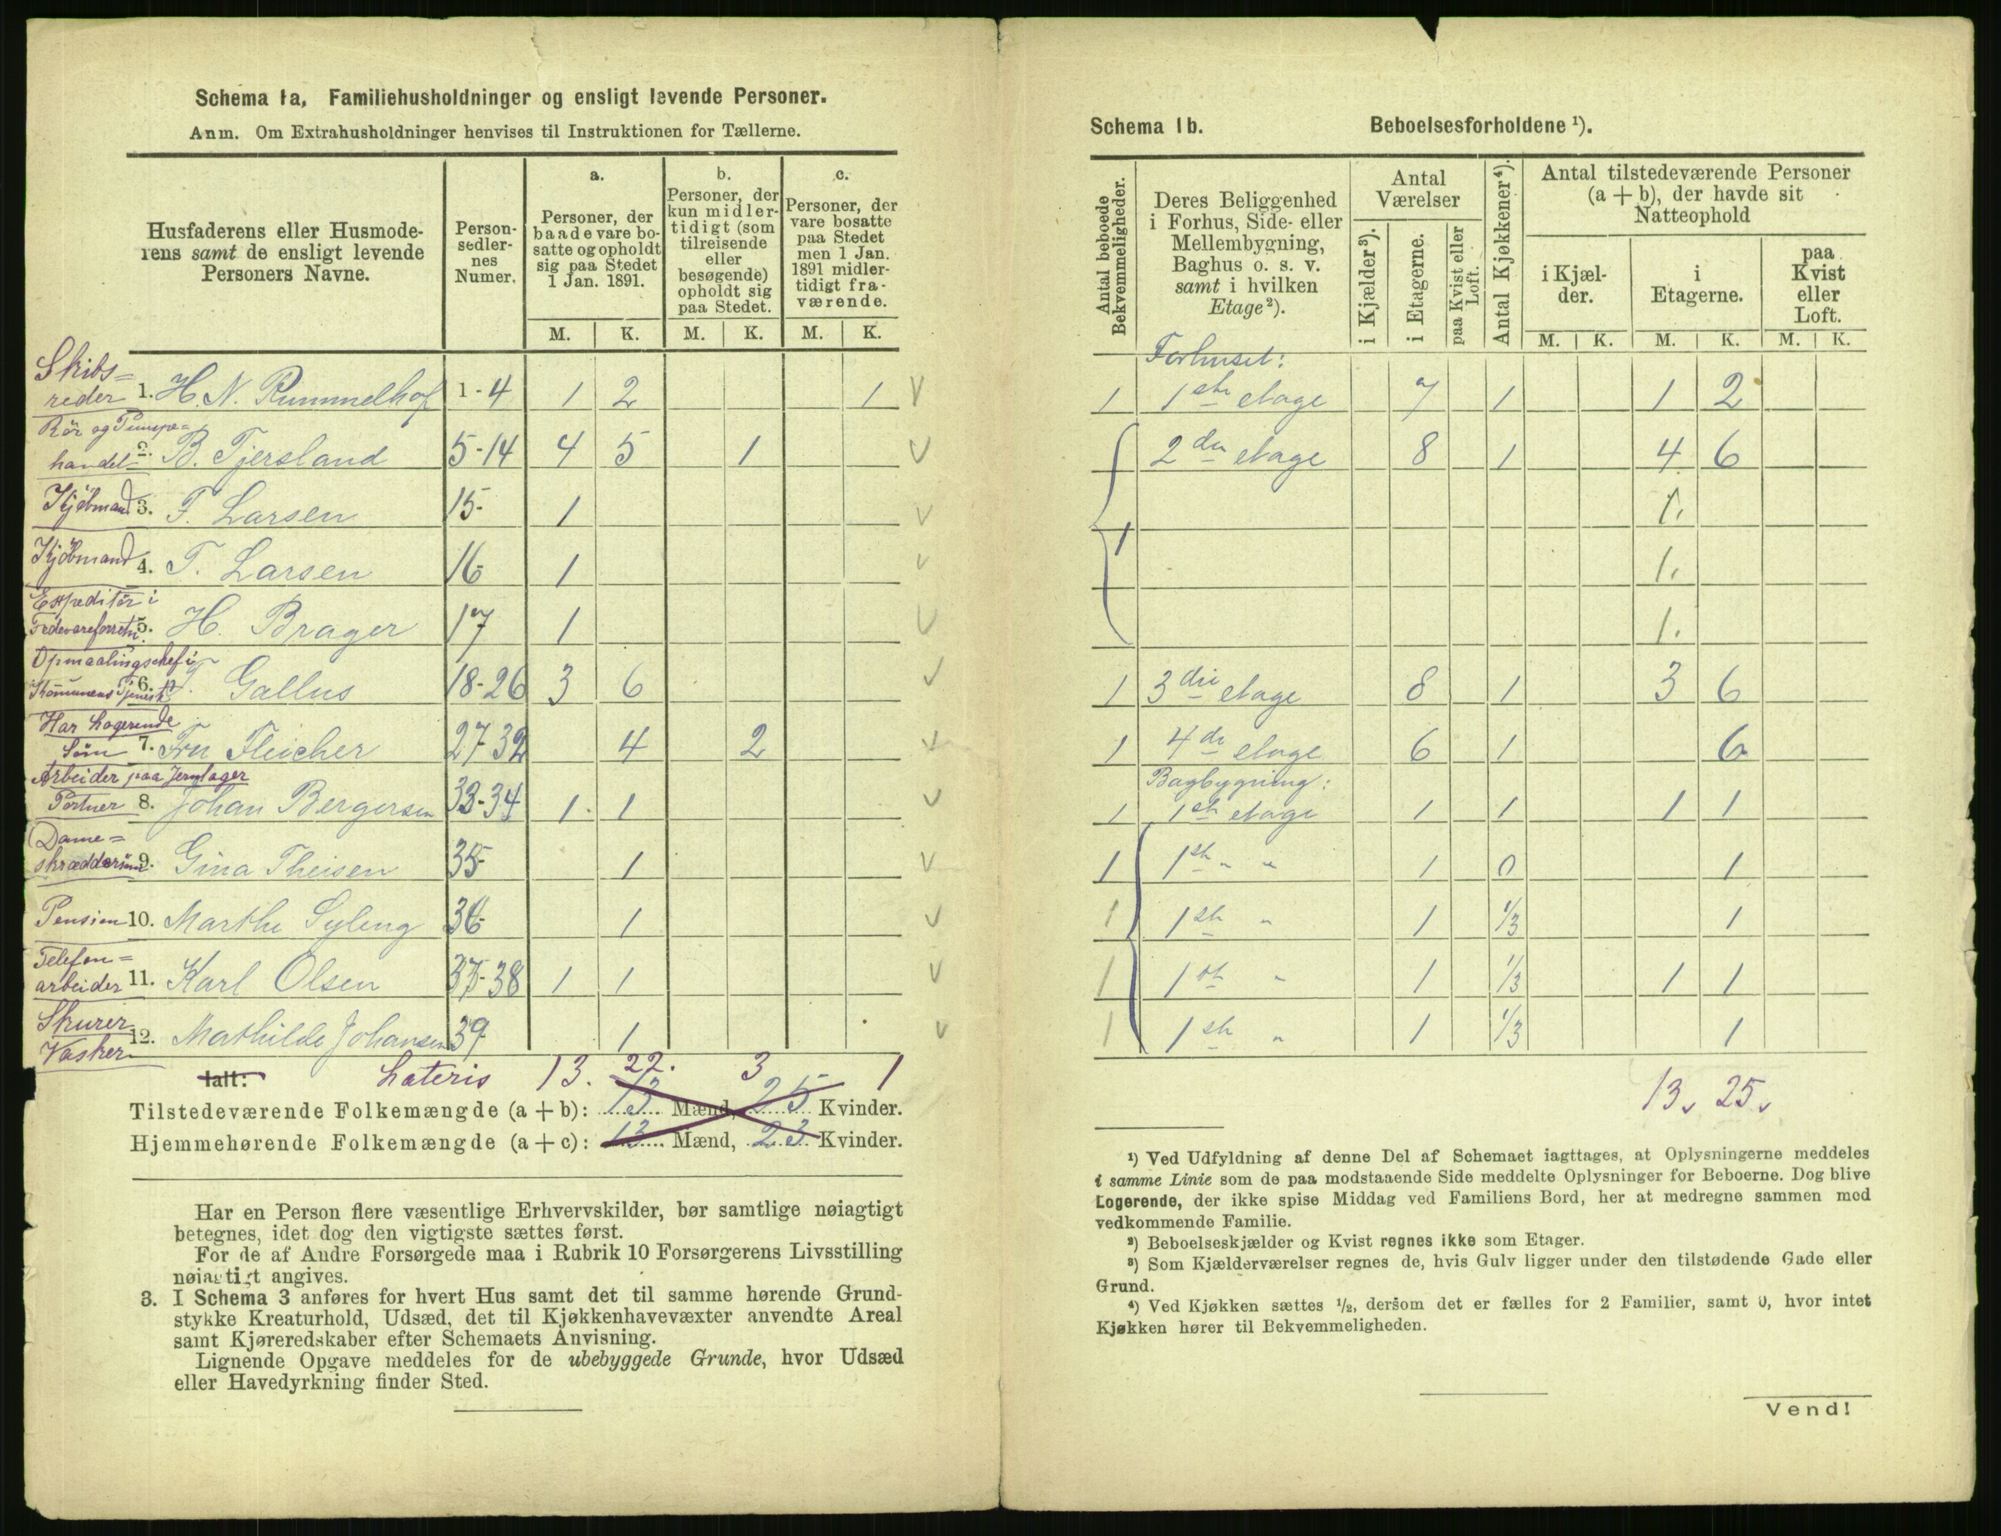 Schema 1a, Familiehusholdninger og ensligt levende Personer.
Anm. Om Extrahusholdninger henvises til Instruktionen for Tællerne.
Husfaderens eller Husmoderens samt de ensligt levende Personers Navne.
Personsedlernes Numer.
a. Personer, der baade vare bosatte og opholdt sig paa Stedet 1 Jan. 1891.
b. Personer, der kun midlertidigt (som tilreisende eller besøgende) opholdt sig paa Stedet.
c. Personer, der vare bosatte paa Stedet men 1 Jan. 1891 midlertidigt fraværende.
M. K. M. K. M. K.
Skibsreder 1. H. N. Rummelhof 1-4 1 2 1
Rör og Pumpehandel 2. B. Tjersland 5-14 4 5 1
Kjöbmand 3. F. Larsen 15- 1
Kjöbmand 4. T. Larsen 16- 1
Expeditör i Fedevareforretn. 5. H. Brager 17 1
Opmaalingschef i Kommunens Tjeneste 6. T. Gallus 18-26 3 6
Har Logerende Sön 7. Fru Fleicher 27-32 4 2
Arbeider paa Jernlager Portner 8. Johan Bergersen 33-34 1 1
Dameskrædderinne 9. Gina Theisen 35- 1
Pension 10. Marthe Syleng 36- 1
Telefonarbeider 11. Karl Olsen 37-38 1 1
Skurer Vasker 12. Mathilde Johansen 39 1
Ialt: Lateris 13. 22. 3 1
Tilstedeværende Folkemængde (a + b): 13 Mænd, 25 Kvinder.
Hjemmehørende Folkemængde (a + c): 13 Mænd, 23 Kvinder.
Har en Person flere væsentlige Erhvervskilder, bør samtlige nøiagtigt
betegnes, idet dog den vigtigste sættes først.
For de af Andre Forsørgede maa i Rubrik 10 Forsørgerens Livsstilling
nøiagtigt angives.
3. I Schema 3 anføres for hvert Hus samt det til samme hørende Grund-
stykke Kreaturhold, Udsæd, det til Kjøkkenhavevæxter anvendte Areal
samt Kjøreredskaber efter Schemaets Anvisning.
Lignende Opgave meddeles for de ubebyggede Grunde, hvor Udsæd
eller Havedyrkning finder Sted.
Schema 1b. Beboelsesforholdene ¹).
Antal beboede Bekvemmeligheder.
Deres Beliggenhed i Forhus, Side- eller Mellembygning, Baghus o. s. v. samt i hvilken Etage²).
Antal Værelser
i Kjælder³).
i Etagerne.
paa Kvist eller Loft.
Antal Kjøkkener⁴).
Antal tilstedeværende Personer (a + b), der havde sit Natteophold
i Kjælder.
i Etagerne.
paa Kvist eller Loft.
M. K. M. K. M. K.
Forhuset:
1 1ste etage 7 1 1 2
2den etage 8 1 4 6
1.
1
1.
1.
1 3die etage 8 1 3 6
1 4de etage 6 1 6
Bagbygning:
1 1ste etage 1 1 1 1
1 1ste „ „ 1 0 1
1 1ste „ 1 1/3 1
1 1ste „ 1 1/3 1 1
1 1ste „ 1 1/3 1
13. 25.
¹) Ved Udfyldning af denne Del af Schemaet iagttages, at Oplysningerne meddeles
i samme Linie som de paa modstaaende Side meddelte Oplysninger for Beboerne. Dog blive
Logerende, der ikke spise Middag ved Familiens Bord, her at medregne sammen med
vedkommende Familie.
²) Beboelseskjælder og Kvist regnes ikke som Etager.
³) Som Kjælderværelser regnes de, hvis Gulv ligger under den tilstødende Gade eller
Grund.
⁴) Ved Kjøkken sættes ½, dersom det er fælles for 2 Familier, samt 0, hvor intet
Kjøkken hører til Bekvemmeligheden.
Vend!